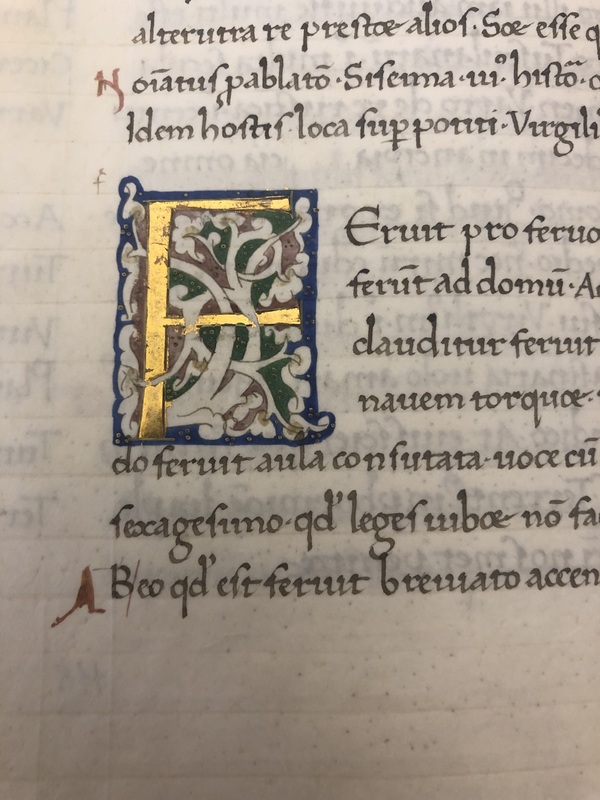 alterutra re prestoę alios. Soę esse q
Noīatus pablatō. Sisenna. iiiº. histō. c
Idem hostis. loca sup̱ potiti. Virgili
f
FEruit pro feruo
feru̅t ad domū. A
clauditur feruit
nauem torquoę.
do feruit aula consutata. uoce cū
sexagesimo. qd' leges iuboę nō fa
ABeo qd' est feruit breuiato accen